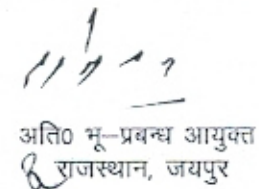 अति0 भू–प्रबन्ध आयुक्त
राजस्थान, जयपुर